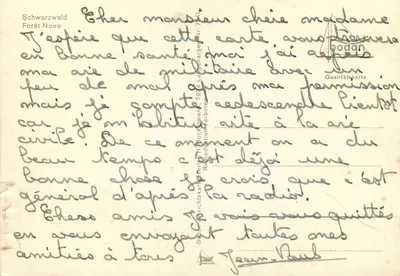 Schwarzwald
Forêt Noire
Eher monsieur chère madame
J'espère que cette carte vous trouvera
en bonne santé moi j'ai repris
ma vie de militaire avec un
peu de mal après ma permission
mais je compte redescendre bientot
car je m'habitue vite à la vie
civile. De ce moment on a du
beau temps c'est déjài une
bonne chose je crois que c'est
général d'après la radio.
Ehers amis je vais vous quittés
en vous envoyant toutes mes
amitiés à tous Jean-Paul
bodan
Qualitätskarte